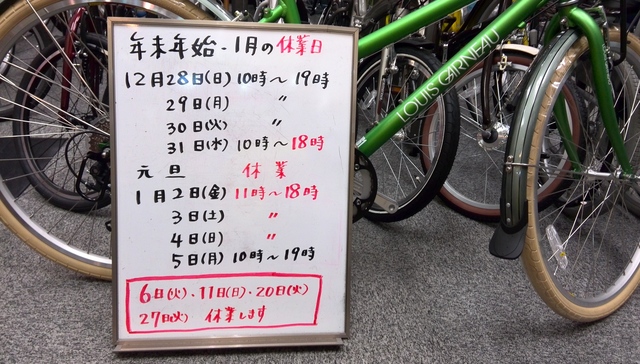 年末年始・1月の休業日
12月28日(日)10時〜19時
29日(月) 〃
30日(火) 〃
31日(水) 10時〜18時
元旦 休業
1月2日(金) 11時〜18時
3日(土) 〃
4日(日) 〃
5日(月) 10時〜19時
6日(火)・11日(日)・20日(火)
27日(火) 休業します
LOUIS GARNEAU